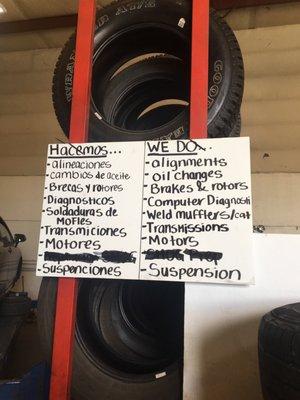 Hacemos...
- alineaciones
- cambios de aceite
- Brecas y rotores
- Diagnosticos
- Soldaduras de
Mofles
- Transmiciones
- Motores
- Suspenciones
WE DO...
- alignments
- oil changes
- Brakes & rotors
- Computer Diagnosti
- Weld mufflers/cat
- Transmissions
- Motors
- Suspension